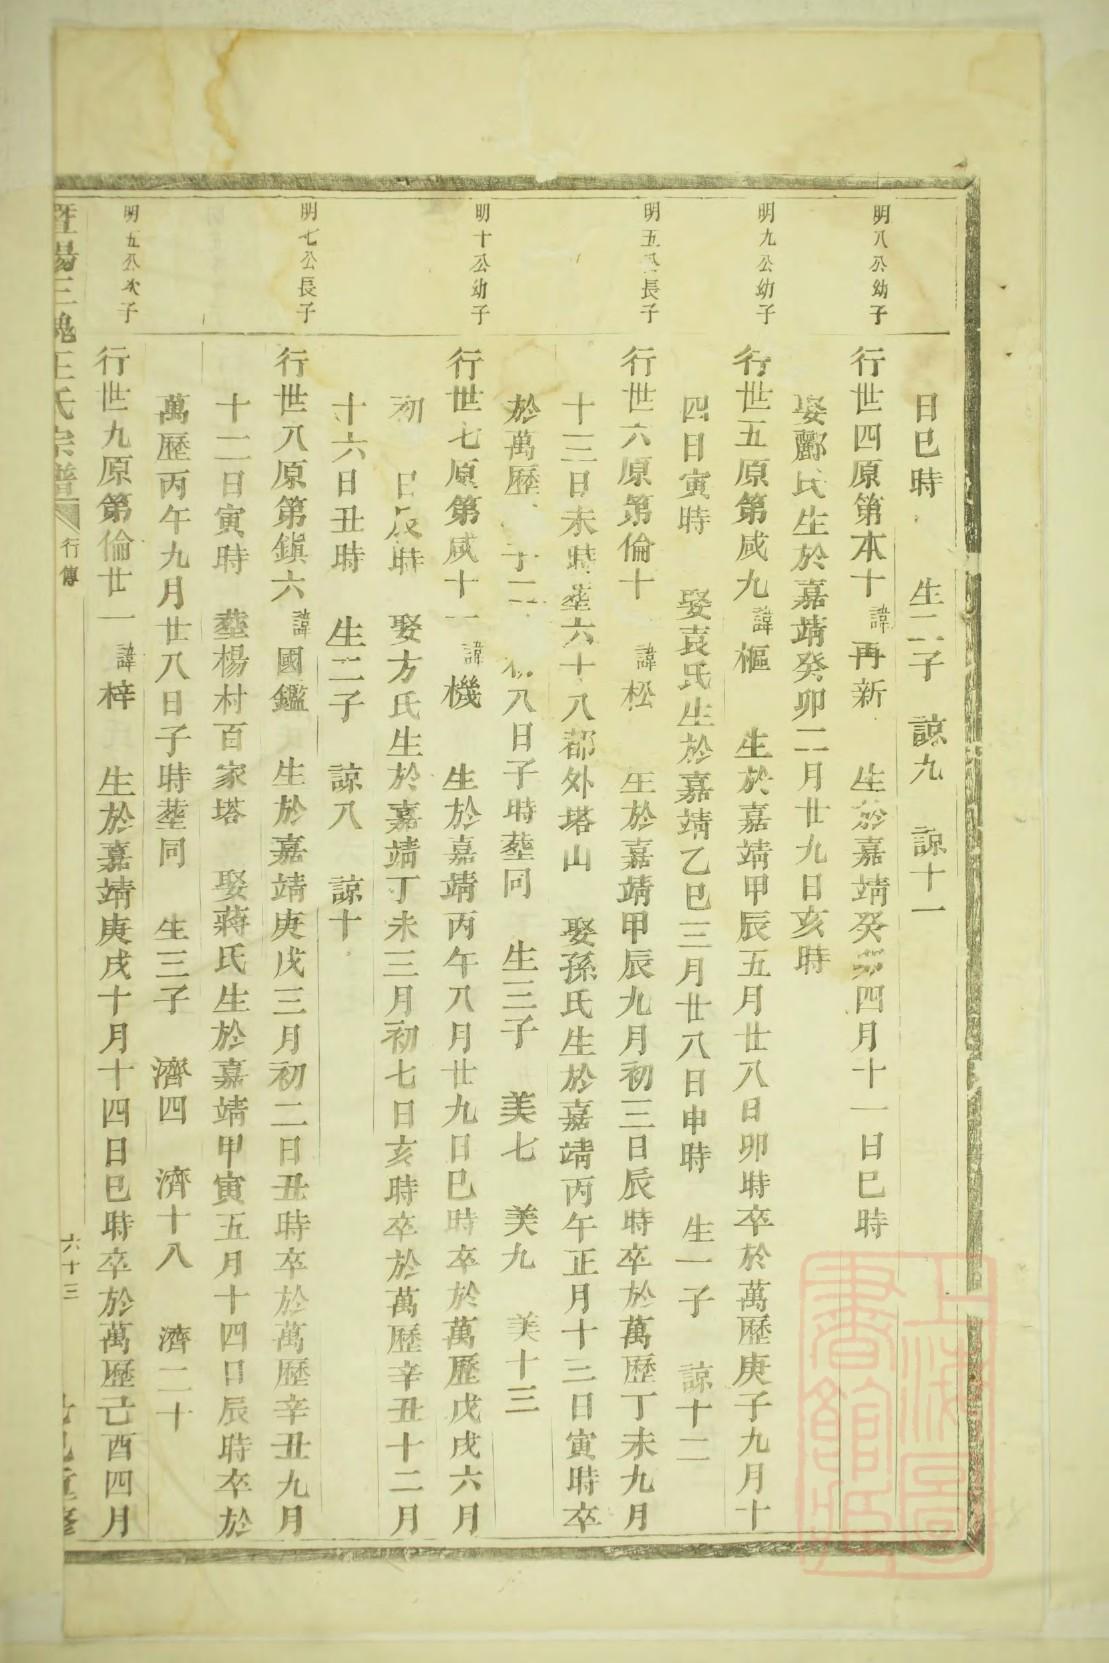 日巳時　生二子　諒九　諒十一
明八公幼子
行世四原第本十諱再新　生於嘉靖癸卯四月十一日巳時
娶酈氏生於嘉靖癸卯二月廿九日亥時
明九公幼子
行世五原第咸九諱樞　生於嘉靖甲辰五月廿八日卯時卒於萬歷庚子九月十
四日寅時　娶袁氏生於嘉靖乙巳三月廿八日申時　生一子　諒十二
明五公長子
行世六原第倫十　諱松　生於嘉靖甲辰九月初三日辰時卒於萬歷丁未九月
十三日未時塟六十八都外塔山　娶孫氏生於嘉靖丙午正月十三日寅時卒
於萬歷　子二　初八日子時塟同　生三子　美七　美九　美十三
明十公幼子
行世七原第咸十一諱機　生於嘉靖丙午八月廿九日巳時卒於萬歷戊戌六月
初　日辰時　娶方氏生於嘉靖丁未三月初七日亥時卒於萬歷辛丑十二月
十六日丑時　生二子　諒八　諒十
明七公長子
行世八原第鎮六諱國鑑　生於嘉靖庚戌三月初二日丑時卒於萬歷辛丑九月
十二日寅時　塟楊村百家塔　娶蔣氏生於嘉靖甲寅五月十四日辰時卒於
萬歷丙午九月廿八日子時塟同　生三子　濟四　濟十八　濟二十
明五公次子
行世九原第倫廿一諱梓　生於嘉靖庚戌十月十四日巳時卒於萬歷己酉四月
暨陽三槐王氏宗譜　行傳　六十三
上海圖書館藏